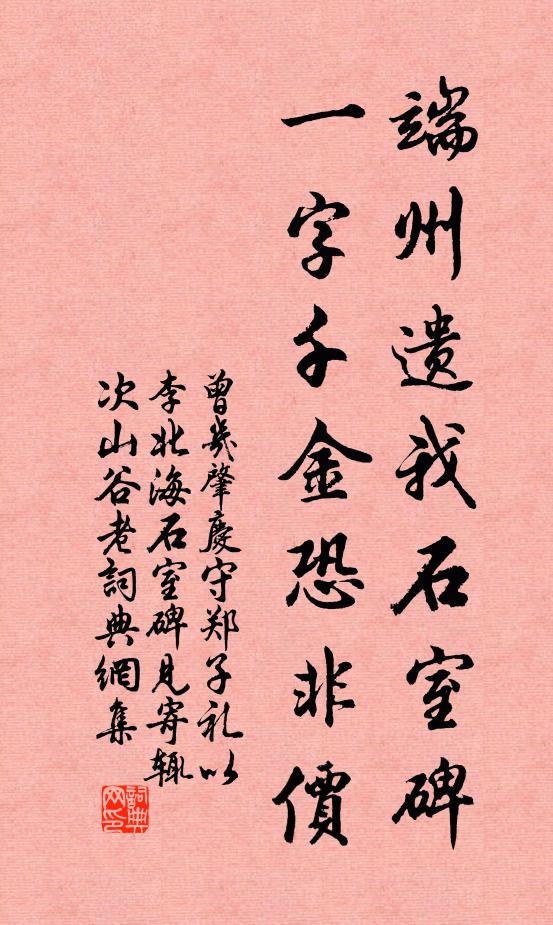 端州遺我石室碑
一字千金恐非價
曾幾肇慶守郑子礼以
李北海石室碑見寄輒
次山谷老詞典網集
詞典網印